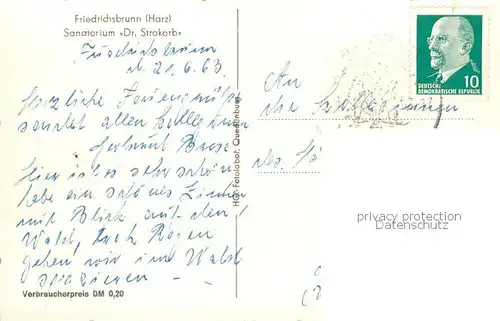 Friedrichsbrunn (Harz)
Sanatorium »Dr. Strokorb«
Friedrichsbrunn
d. 20.6.63
Herzliche Feriengrüße
sendet allen Kolleginnen
Hier ist es sehr schön
habe ein schönes Zimmer
mit Blick auf den
Wald, nach Regen
gehen wir im Wald
spazieren –
Verbraucherpreis DM 0,20
An
die Kolleginnen
des
10
DEUTSCHE
DEMOKRATISCHE REPUBLIK
privacy protection
Datenschutz